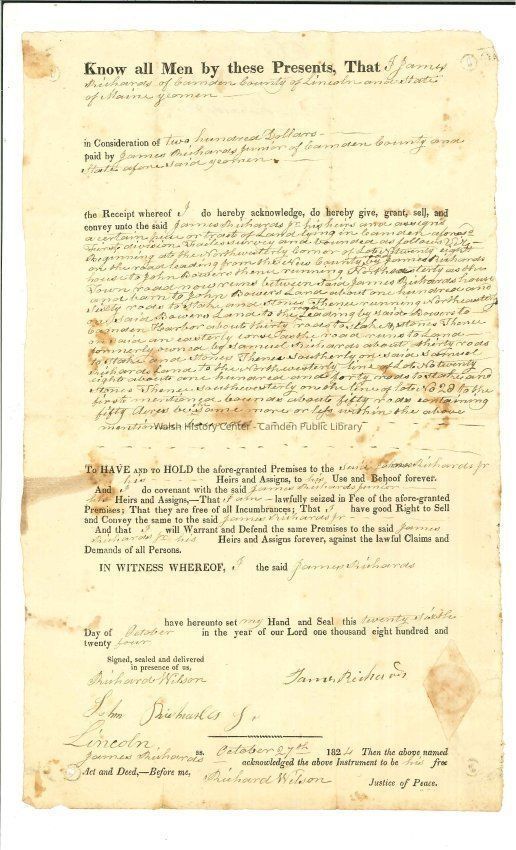 Know all Men by these Presents, That I James
Richards of Camden County of Lincoln and State
of Maine yeomen
in Consideration of two hundred Dollars
paid by James Richards Junior of Camden County and
State afore Said yeomen
the Receipt whereof I do hereby acknowledge, do hereby give, grant, sell, and
convey unto the said James Richards Jr his heirs and assigns
a certain piece or tract of Land lying in Camden aforesd
First division survey and bounded as follows Viz
Beginning at the Northwesterly corner of Lot No twenty eight
on the road leading from the New County road by James Richards
house to John Bowers thence running Northeasterly as the
Town road now runs between Said James Richards house
and barn to John Bowers Land about one hundred and
Sixty rods to Stake and Stones Thence running Northeasterly
on said Bowers Land to the road leading by said Bowers to
Camden Harbor about thirty rods to Stake & Stones Thence
on said an easterly course as the road runs to Land
formerly owned by Samuel Richards about thirty rods
to Stake and Stones Thence Southerly on said Samuel
Richards Land to the Northwesterly line of Lot No twenty
eight about one hundred and forty rods to Stake and
Stones Thence Southwesterly on the line of lot No 28 to the
first mentioned bounds about fifty rods containing
fifty Acres be Same more or less within the above
mentioned
Walsh History Center - Camden Public Library
To HAVE AND TO HOLD the afore-granted Premises to the said James Richards Jr
his Heirs and Assigns, to his Use and Behoof forever.
And I do covenant with the said James Richards Junior
his Heirs and Assigns,—That I am lawfully seized in Fee of the afore-granted
Premises; That they are free of all Incumbrances; That I have good Right to Sell
and Convey the same to the said James Richards Jr
And that I will Warrant and Defend the same Premises to the said James
Richards Jr his Heirs and Assigns forever, against the lawful Claims and
Demands of all Persons.
IN WITNESS WHEREOF, I the said James Richards
have hereunto set my Hand and Seal this twenty Sixth
Day of October in the year of our Lord one thousand eight hundred and
twenty four
Signed, sealed and delivered
in presence of us,
Richard Wilson
James Richards
John Richards Jr
Lincoln ss. October 27th 1824 Then the above named
James Richards acknowledged the above Instrument to be his free
Act and Deed,—Before me, Richard Wilson
Justice of Peace.